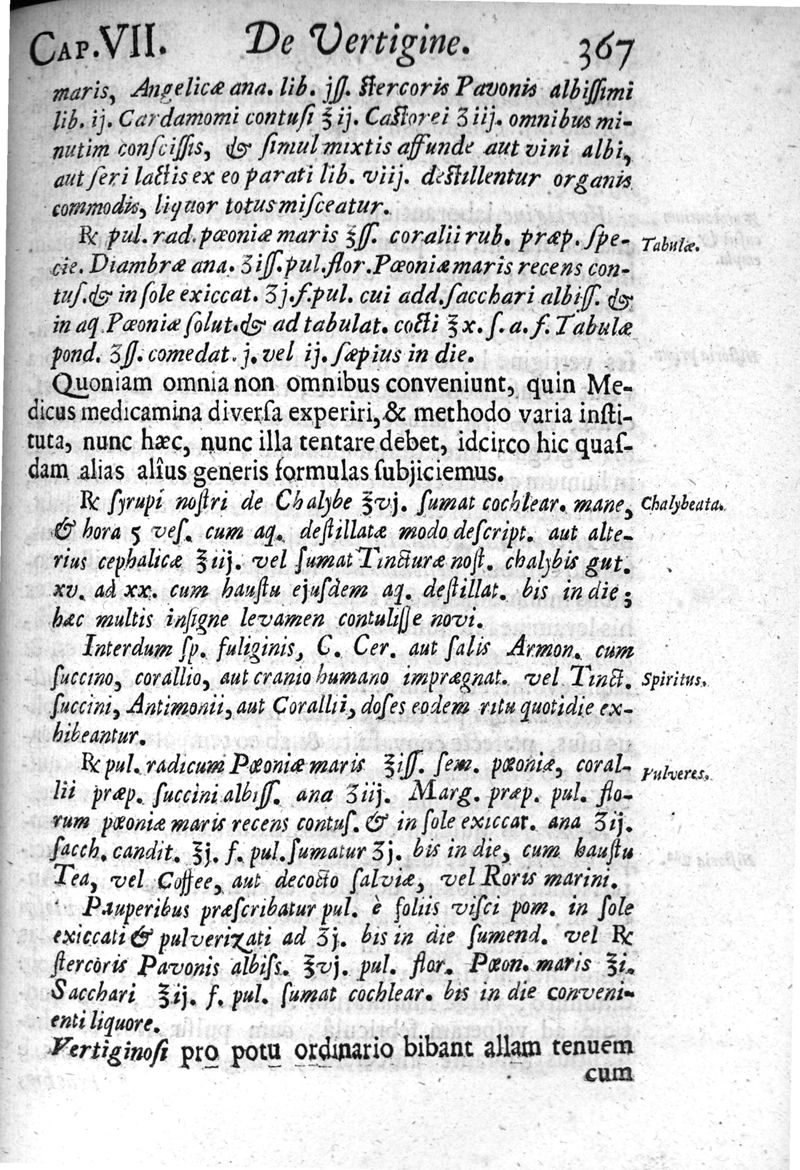 CAP.VII. De Vertigine. 367
maris, Angelicæ ana. lib. jſſ. ſtercoris Pavonis albiſſimi
lib. ij. Cardamomi contuſi ℥ij. Caſtorei ʒiij. omnibus mi-
nutim conſciſſis, & ſimul mixtis affunde aut vini albi,
aut ſeri lactis ex eo parati lib. viij. deſtillentur organis
commodis, liquor totus miſceatur.
℞ pul. rad. pœoniæ maris ℥ſſ. coralii rub. præp. ſpe-
Tabulæ.
cie. Diambræ ana. ʒiſſ. pul. flor. Pœoniæ maris recens con-
tuſ. & in ſole exiccat. ʒj. f. pul. cui add. ſacchari albiſſ. &
in aq. Pœoniæ ſolut. & ad tabulat. cocti ℥x. ſ. a. f. Tabulæ
pond. ʒſſ. comedat. j. vel ij. ſæpius in die.
Quoniam omnia non omnibus conveniunt, quin Me-
dicus medicamina diverſa experiri, & methodo varia inſti-
tuta, nunc hæc, nunc illa tentare debet, idcirco hic quaſ-
dam alias alîus generis formulas ſubjiciemus.
℞ ſyrupi noſtri de Chalybe ℥vj. ſumat cochlear. mane,
Chalybeata.
& hora 5 veſ. cum aq. deſtillatæ modo deſcript. aut alte-
rius cephalicæ ℥iij. vel ſumat Tincturæ noſt. chalybis gut.
xv. ad xx. cum hauſtu ejuſdem aq. deſtillat. bis in die;
hæc multis inſigne levamen contuliſſe novi.
Interdum ſp. fuliginis, C. Cer. aut ſalis Armon. cum
ſuccino, corallio, aut cranio humano imprægnat. vel Tinct.
Spiritus.
ſuccini, Antimonii, aut Corallii, doſes eodem ritu quotidie ex-
hibeantur.
℞ pul. radicum Pœoniæ maris ℥iſſ. ſem. pœoniæ, coral-
Pulveres.
lii præp. ſuccini albiſſ. ana ʒiij. Marg. præp. pul. flo-
rum pœoniæ maris recens contuſ. & in ſole exiccat. ana ʒij.
ſacch. candit. ℥j. f. pul. ſumatur ʒj. bis in die, cum hauſtu
Tea, vel Coffee, aut decocto ſalviæ, vel Roris marini.
Pauperibus præſcribatur pul. è foliis viſci pom. in ſole
exiccati & pulverizati ad ʒj. bis in die ſumend. vel ℞
ſtercoris Pavonis albiſs. ℥vj. pul. flor. Pœon. maris ℥i.
Sacchari ℥ij. f. pul. ſumat cochlear. bis in die conveni-
enti liquore.
Vertiginoſi pro potu ordinario bibant allam tenuem
cum